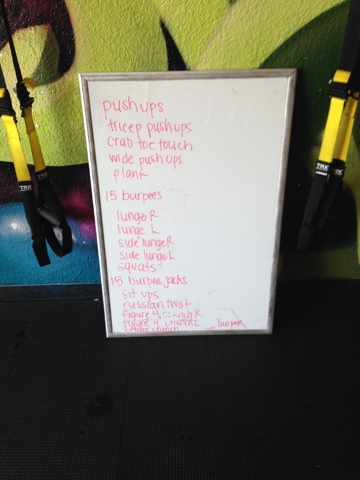 pushups
tricep pushups
crab toe touch
wide pushups
plank
15 burpees
lunge R
lunge L
side lunge R
side lunge L
squats
15 burpee jacks
sit ups
russian twist
figure 4 crunch R
figure 4 crunch L
spider crunch
burpee
TRX
TRX